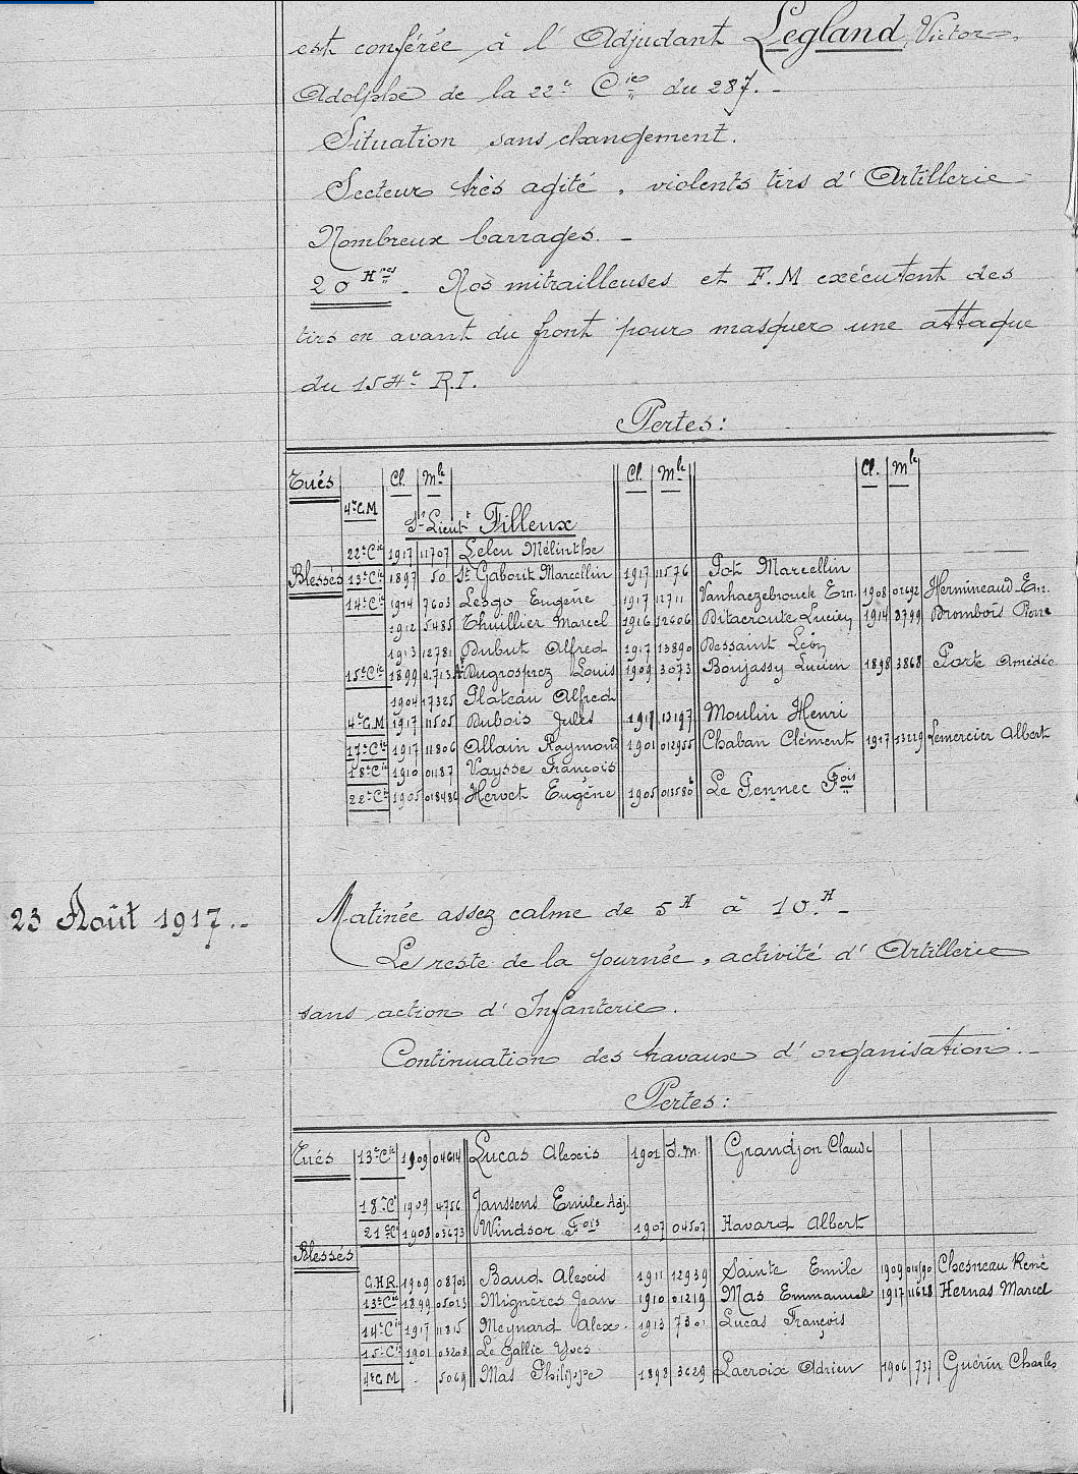 est conférée à l'Adjudant Legland Victor-
Adolphe de la 22e Cie du 287. -
Situation sans changement.
Secteur très agité, violents tirs d'Artillerie -
Nombreux barrages. -
20 Hres - Nos mitrailleuses et F.M exécutent des
tirs en avant du front pour masquer une attaque
du 154e R.I.
Pertes :
Tués Cl. Mle Cl. Mle Cl. Mle
4e C.M St Lieut Filleux
22e Cie 1917 11707 Leleu Mélinthe
Blessés 13e Cie 1897 50 St Gaborit Marcellin 1917 11576 Pot Marcellin
14e Cie 1914 7603 Lesgo Eugène 1917 12711 Vanhaezebrouck Ern. 1908 01692 Hermineaud Ern.
1912 5485 Thuillier Marcel 1916 12606 Ditacroute Lucien 1914 8799 Brombois Pierre
1913 12781 Dubut Alfred 1917 13890 Dessaint Léon
15e Cie 1899 4713 Dugrosprez Louis 1909 3073 Boujassy Lucien 1898 3868 Porte Amédée
1904 17325 Plateau Alfred
4e C.M 1917 11505 Dubois Jules 1917 13197 Moulin Henri
17e Cie 1917 11806 Allain Raymond 1901 012955 Chaban Clément 1917 13229 Lemercier Albert
18e Cie 1910 01187 Vaysse François
22e Cie 1905 018484 Hervet Eugène 1905 013580 Le Pennec Fois
23 Août 1917.- Matinée assez calme de 5H à 10.H -
Le reste de la journée, activité d'Artillerie
sans action d'Infanterie.
Continuation des travaux d'organisation. -
Pertes :
Tués 13e Cie 1909 04614 Lucas Alexis 1901 S.M. Grandjon Claude
18e Cie 1909 4756 Janssens Emile Adj.
21e Cie 1908 03673 Windsor Fois 1907 04507 Havard Albert
Blessés
C.H.R. 1909 08703 Baud Alexis 1911 12939 Sainte Emile 1909 Chesneau René
13e Cie 1899 05023 Mignères Jean 1910 01219 Mas Emmanuel 1917 11628 Hernas Marcel
14e Cie 1917 11815 Meynard Alex. 1913 7301 Lucas François
15e Cie 1901 03208 Le Gallic Yves
4e C.M 5069 Mas Philippe 1898 3629 Lacroix Adrien 1906 737 Guérin Charles